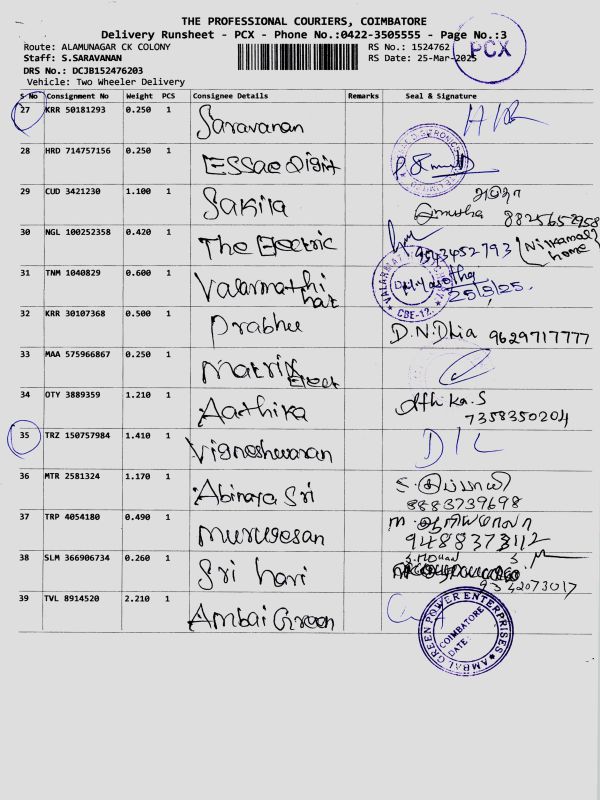 THE PROFESSIONAL COURIERS, COIMBATORE
Delivery Runsheet - PCX - Phone No.:0422-3505555 - Page No.:3
Route: ALAMUNAGAR CK COLONY
RS No.: 1524762
PCX
Staff: S.SARAVANAN
RS Date: 25-Mar-2025
DRS No.: DCJB152476203
Vehicle: Two Wheeler Delivery
S No Consignment No Weight PCS Consignee Details Remarks Seal & Signature
27 KRR 50181293 0.250 1 Saravanan
28 HRD 714757156 0.250 1 Essae Digit
29 CUD 3421230 1.100 1 Sakila
8825658958
30 NGL 100252358 0.420 1 The Electric
9543452793 (Nilkamal home
31 TNM 1040829 0.600 1 Valarmathi hat
25/3/25.
CBE-12.
32 KRR 30107368 0.500 1 Prabhu D.N.Dhia 9629717777
33 MAA 575966867 0.250 1 Matrix Elect
34 OTY 3889359 1.210 1 Aathika
7358350204
35 TRZ 150757984 1.410 1 Vigneshwaran D/L
36 MTR 2581324 1.170 1 Abinaya Sri
8883739698
37 TRP 4054180 0.490 1 Murugesan
9488373112
38 SLM 366906734 0.260 1 Sri hari S.Mohan
9342073017
39 TVL 8914520 2.210 1 Ambai Green
AMBAI GREEN POWER ENTERPRISES
COIMBATORE
DATE: